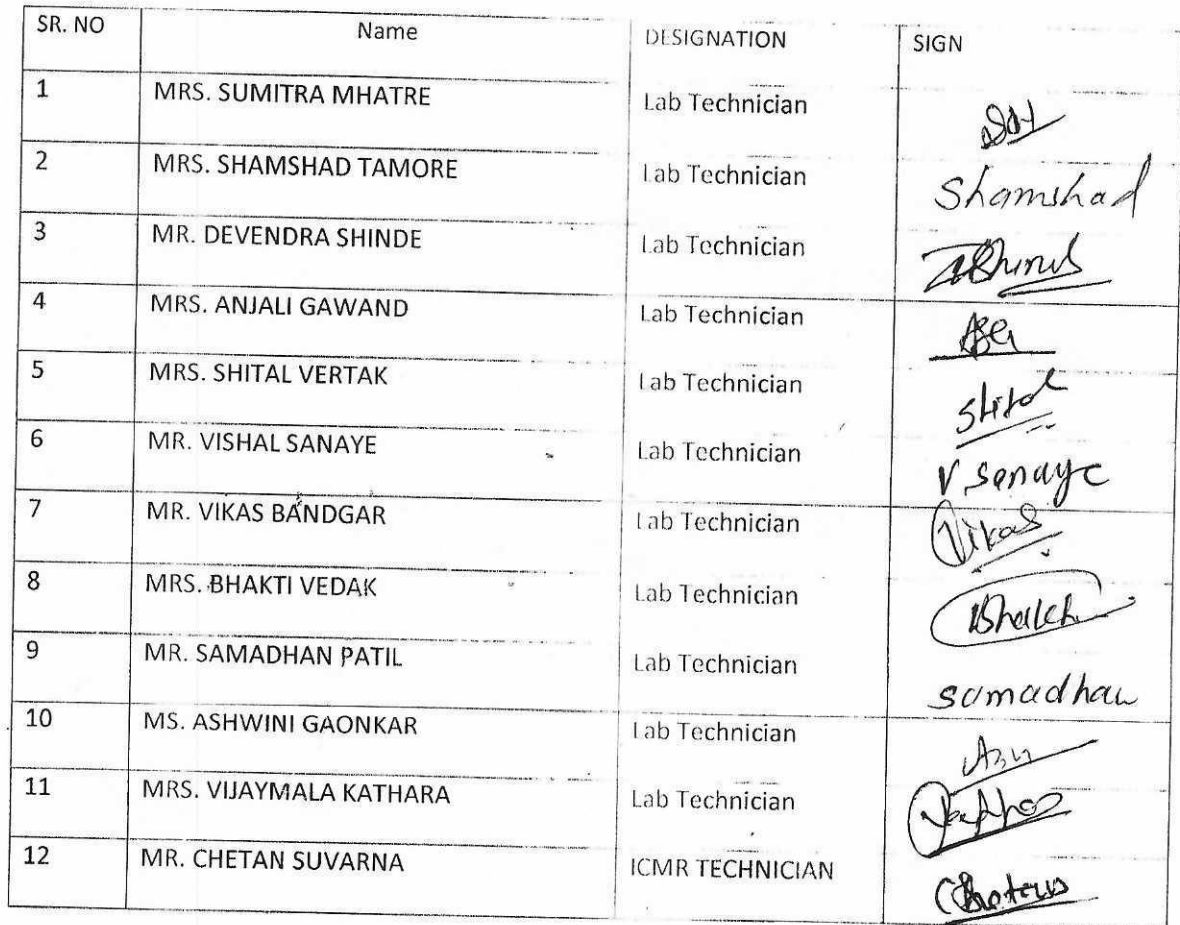 SR. NO Name DESIGNATION SIGN
1 MRS. SUMITRA MHATRE Lab Technician
2 MRS. SHAMSHAD TAMORE Lab Technician Shamshad
3 MR. DEVENDRA SHINDE Lab Technician
4 MRS. ANJALI GAWAND Lab Technician
5 MRS. SHITAL VERTAK Lab Technician Shital
6 MR. VISHAL SANAYE Lab Technician V.Sanaye
7 MR. VIKAS BANDGAR Lab Technician Vikas
8 MRS. BHAKTI VEDAK Lab Technician
9 MR. SAMADHAN PATIL Lab Technician samadhan
10 MS. ASHWINI GAONKAR Lab Technician
11 MRS. VIJAYMALA KATHARA Lab Technician
12 MR. CHETAN SUVARNA ICMR TECHNICIAN